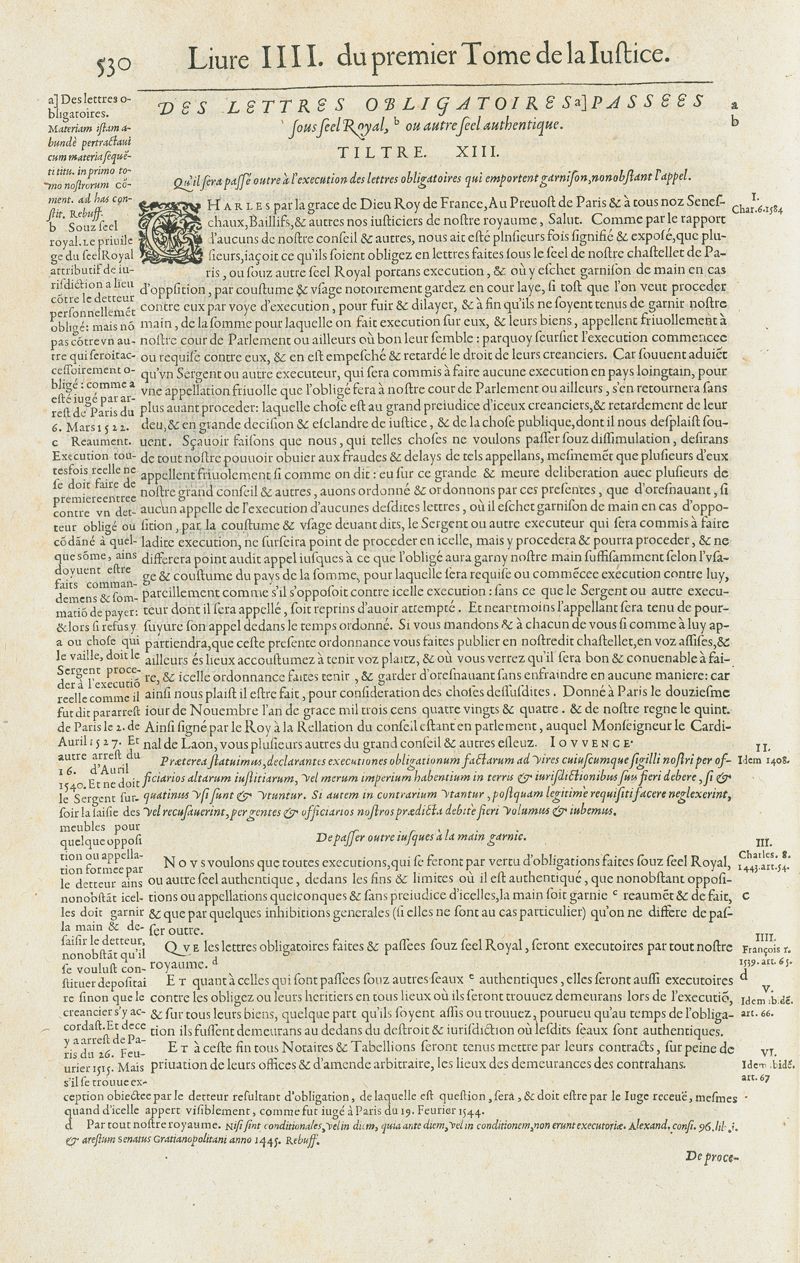 530
Liure IIII. du premier Tome de la Iuſtice.
DES LETTRES OBLIGATOIRES a] PASSEES
ſous ſeel Royal, b ou autre ſeel authentique.
TILTRE. XIII.
Qu'il ſera paſſé outre à l'execution des lettres obligatoires qui emportent garniſon, nonobſtant l'appel.
CHARLES par la grace de Dieu Roy de France, Au Preuoſt de Paris & à tous noz Seneſ-
chaux, Baillifs, & autres nos iuſticiers de noſtre royaume, Salut. Comme par le rapport
d'aucuns de noſtre conſeil & autres, nous ait eſté pluſieurs fois ſignifié & expoſé, que plu-
ſieurs, iaçoit ce qu'ils ſoient obligez en lettres faites ſous le ſeel de noſtre chaſtellet de Pa-
ris, ou ſouz autre ſeel Royal portans execution, & où y eſchet garniſon de main en cas
d'oppſition, par couſtume & vſage notoirement gardez en cour laye, ſi toſt que l'on veut proceder
contre eux par voye d'execution, pour fuir & dilayer, & à fin qu'ils ne ſoyent tenus de garnir noſtre
main, de la ſomme pour laquelle on fait execution ſur eux, & leurs biens, appellent friuollement à
noſtre cour de Parlement ou ailleurs où bon leur ſemble: parquoy ſurſiet l'execution commencee
ou requiſe contre eux, & en eſt empeſché & retardé le droit de leurs creanciers. Car ſouuent aduiẽt
qu'vn Sergent ou autre executeur, qui ſera commis à faire aucune execution en pays loingtain, pour
vne appellation friuolle que l'obligé fera à noſtre cour de Parlement ou ailleurs, s'en retournera ſans
plus auant proceder: laquelle choſe eſt au grand preiudice d'iceux creanciers, & retardement de leur
deu, & en grande deciſion & eſclandre de iuſtice, & de la choſe publique, dont il nous deſplaiſt ſou-
uent. Sçauoir faiſons que nous, qui telles choſes ne voulons paſſer ſouz diſſimulation, deſirans
de tout noſtre pouuoir obuier aux fraudes & delays de tels appellans, meſmemẽt que pluſieurs d'eux
appellent friuolement ſi comme on dit: eu ſur ce grande & meure deliberation auec pluſieurs de
noſtre grand conſeil & autres, auons ordonné & ordonnons par ces preſentes, que d'oreſnauant, ſi
aucun appelle de l'execution d'aucunes deſdites lettres, où il eſchet garniſon de main en cas d'oppo-
ſition, par la couſtume & vſage deuant dits, le Sergent ou autre executeur qui ſera commis à faire
ladite execution, ne ſurſeira point de proceder en icelle, mais y procedera & pourra proceder, & ne
differera point audit appel iuſques à ce que l'obligé aura garny noſtre main ſuffiſamment ſelon l'vſa-
ge & couſtume du pays de la ſomme, pour laquelle ſera requiſe ou commẽcee execution contre luy,
pareillement comme s'il s'oppoſoit contre icelle execution: ſans ce que le Sergent ou autre execu-
teur dont il ſera appellé, ſoit reprins d'auoir attempté. Et neantmoins l'appellant ſera tenu de pour-
ſuyure ſon appel dedans le temps ordonné. Si vous mandons & à chacun de vous ſi comme à luy ap-
partiendra, que ceſte preſente ordonnance vous faites publier en noſtredit chaſtellet, en voz aſſiſes, &
ailleurs és lieux accouſtumez à tenir voz plaitz, & où vous verrez qu'il ſera bon & conuenable à fai-
re, & icelle ordonnance faites tenir, & garder d'oreſnauant ſans enfraindre en aucune maniere: car
ainſi nous plaiſt il eſtre fait, pour conſideration des choſes deſſuſdites. Donné à Paris le douzieſme
iour de Nouembre l'an de grace mil trois cens quatre vingts & quatre. & de noſtre regne le quint.
Ainſi ſigné par le Roy à la Rellation du conſeil eſtant en parlement, auquel Monſeigneur le Cardi-
nal de Laon, vous pluſieurs autres du grand conſeil & autres eſleuz. IOVVENCE.
Præterea ſtatuimus, declarantes executiones obligationum factarum ad vires cuiuſcumque ſigilli noſtri per of-
ficiarios altarum iuſtitiarum, vel merum imperium habentium in terris & iuriſdictionibus ſuis fieri debere, ſi &
quatinus vſi ſunt & vtuntur. Si autem in contrarium vtantur, poſtquam legitimè requiſiti facere neglexerint,
vel recuſauerint, per gentes & officiarios noſtros prædicta debitè fieri volumus & iubemus.
De paſſer outre iuſques à la main garnie.
NOVS voulons que toutes executions, qui ſe feront par vertu d'obligations faites ſouz ſeel Royal,
ou autre ſeel authentique, dedans les fins & limites où il eſt authentiqué, que nonobſtant oppoſi-
tions ou appellations quelconques & ſans preiudice d'icelles, la main ſoit garnie c reaumẽt & de fait,
& que par quelques inhibitions generales (ſi elles ne font au cas particulier) qu'on ne differe de paſ-
ſer outre.
QVE les lettres obligatoires faites & paſſees ſouz ſeel Royal, ſeront executoires par tout noſtre
royaume. d
ET quant à celles qui ſont paſſees ſouz autres ſeaux e authentiques, elles ſeront auſſi executoires
contre les obligez ou leurs heritiers en tous lieux où ils ſeront trouuez demeurans lors de l'executiõ,
& ſur tous leurs biens, quelque part qu'ils ſoyent aſſis ou trouuez, pourueu qu'au temps de l'obliga-
tion ils fuſſent demeurans au dedans du deſtroit & iuriſdiction où leſdits ſeaux ſont authentiques.
ET à ceſte fin tous Notaires & Tabellions ſeront tenus mettre par leurs contracts, ſur peine de
priuation de leurs offices & d'amende arbitraire, les lieux des demeurances des contrahans.
a] Des lettres o-
bligatoires.
Materiam iſtam a-
bundè pertractaui
cum materia ſequẽ-
ti titu. in primo to-
mo noſtrorum cõ-
ment. ad has con-
ſtit. Rebuff.
b Souz ſeel
royal. Le priuile
ge du ſeel Royal
attributif de iu-
riſdiction a lieu
cõtre le detteur
perſonnellemẽt
obligé: mais nõ
pas cõtre vn au-
tre qui ſeroit ac-
ceſſoirement o-
bligé: comme a
eſté iugé par ar-
reſt de Paris du
6. Mars 1522.
c Reaument.
Execution tou-
tesfois reelle ne
ſe doit faire de
premiere entree
contre vn det-
teur obligé ou
cõdãné à quel-
que sõme, ains
doyuent eſtre
faits comman-
demens & ſom-
matiõ de payer:
& lors ſi refus y
a ou choſe qui
le vaille, doit le
Sergent proce-
der à l'executiõ
reelle comme il
fut dit par arreſt
de Paris le 2. de
Auril 1527. Et
autre arreſt du
16. d'Auril
1540. Et ne doit
le Sergent ſur-
ſoir la ſaiſie des
meubles pour
quelque oppoſi
tion ou appella-
tion formee par
le detteur ains
nonobſtãt icel-
les doit garnir
la main & de-
ſaiſir le detteur,
nonobſtãt qu'il
ſe vouluſt con-
ſtituer depoſitai
re ſinon que le
creancier s'y ac-
cordaſt. Et de ce
y a arreſt de Pa-
ris du 26. Feu-
urier 1515. Mais
s'il ſe trouue ex-
ception obiectee par le detteur reſultant d'obligation, de laquelle eſt queſtion, ſera, & doit eſtre par le Iuge receuë, meſmes
quand d'icelle appert viſiblement, comme fut iugé à Paris du 19. Feurier 1544.
d Par tout noſtre royaume. Niſi ſint conditionales, vel in diem, quia ante diem, vel in conditionem, non erunt executoriæ. Alexand. conſi. 96. lib. i.
& areſtum Senatus Gratianopolitani anno 1445. Rebuff.
a
b
I.
Char. 6. 1384
II.
Idem 1408.
III.
Charles. 8.
1443. art. 54.
c
IIII.
François 1.
1539. art. 65.
d
V.
Idem ibidẽ.
art. 66.
VI.
Idem ibidẽ.
art. 67
De proce-